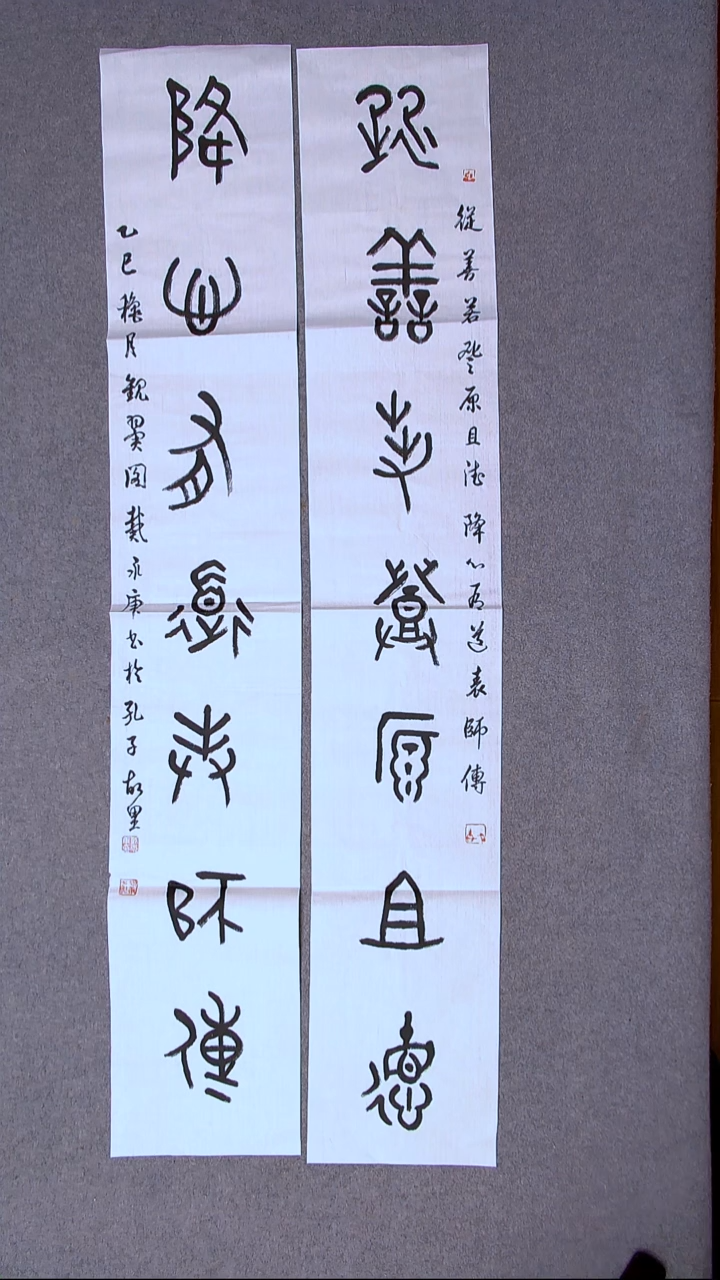 從善若登原且德
從善若登原且德降心有道師傳
降心有道師傳
乙巳穐月觀翼閣戴永庚書於孔子故里